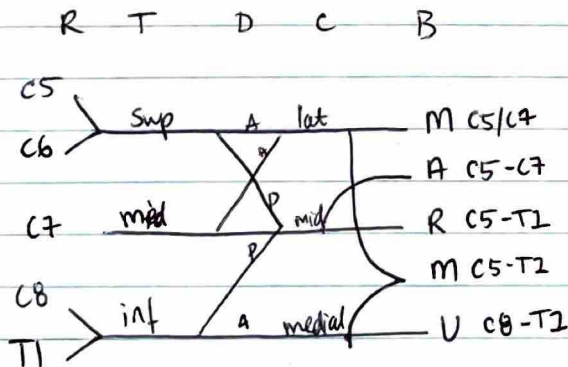 R T D C B
C5
Sup A lat M C5/C7
C6
A
A C5-C7
P
C7 med mid R C5-T1
P
M C5-T1
C8
inf A medial U C8-T1
T1